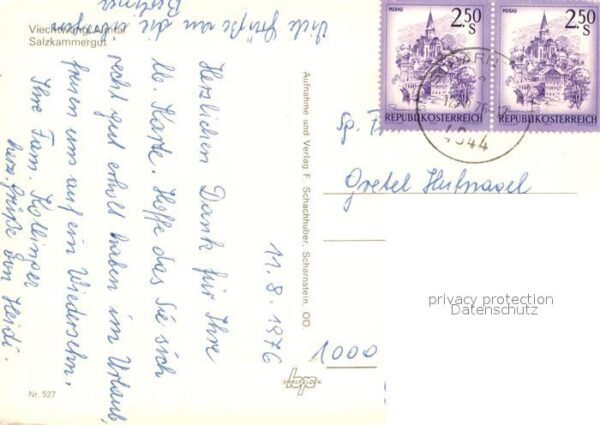 Viechtwang Almtal
Salzkammergut
11.8.1976
Herzlichen Dank für Ihre
lb. Karte. Hoffe das Sie sich
recht gut erholt haben im Urlaub,
freuen uns auf ein Wiedersehn.
Ihre Fam. Kollinger
herz. grüße von Heidi.
Viele Grüße an die
Nr. 527
Aufnahme und Verlag F. Schachhuber, Scharnstein, OÖ.
SAALFELDEN
MURAU
2.50
S
REPUBLIK ÖSTERREICH
MURAU
2.50
S
REPUBLIK ÖSTERREICH
4644
Sp. F
Gretel Hufnagel
1000
privacy protection
Datenschutz